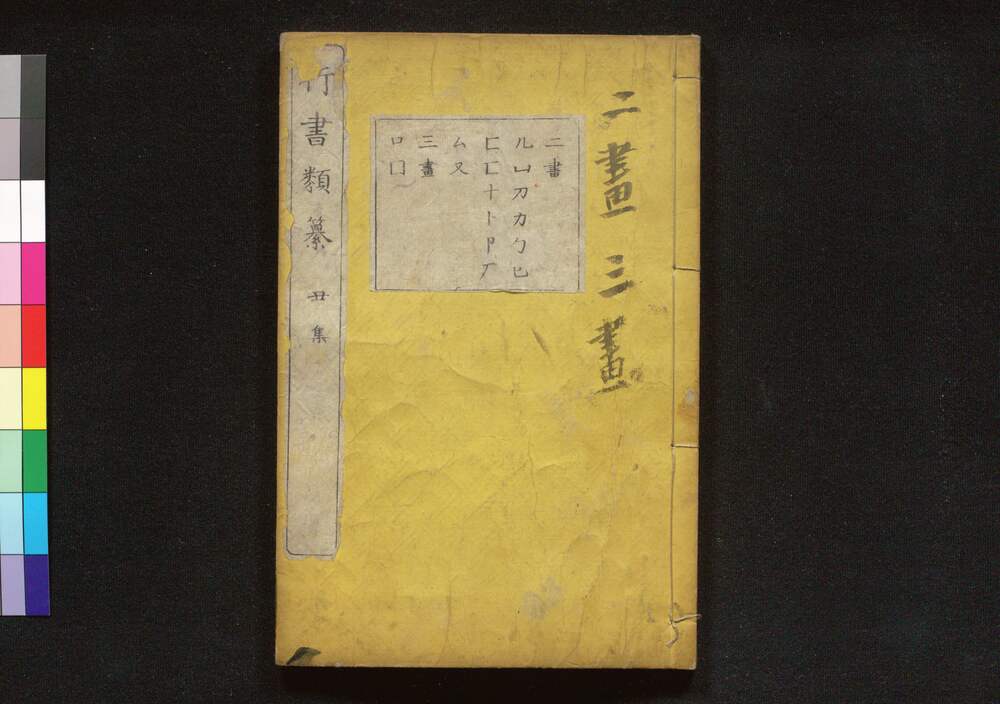 二畫三畫
二畫
儿凵刀力勹匕
匚匸十卜卩厂
厶又
三畫
口囗
行書類纂 丑集